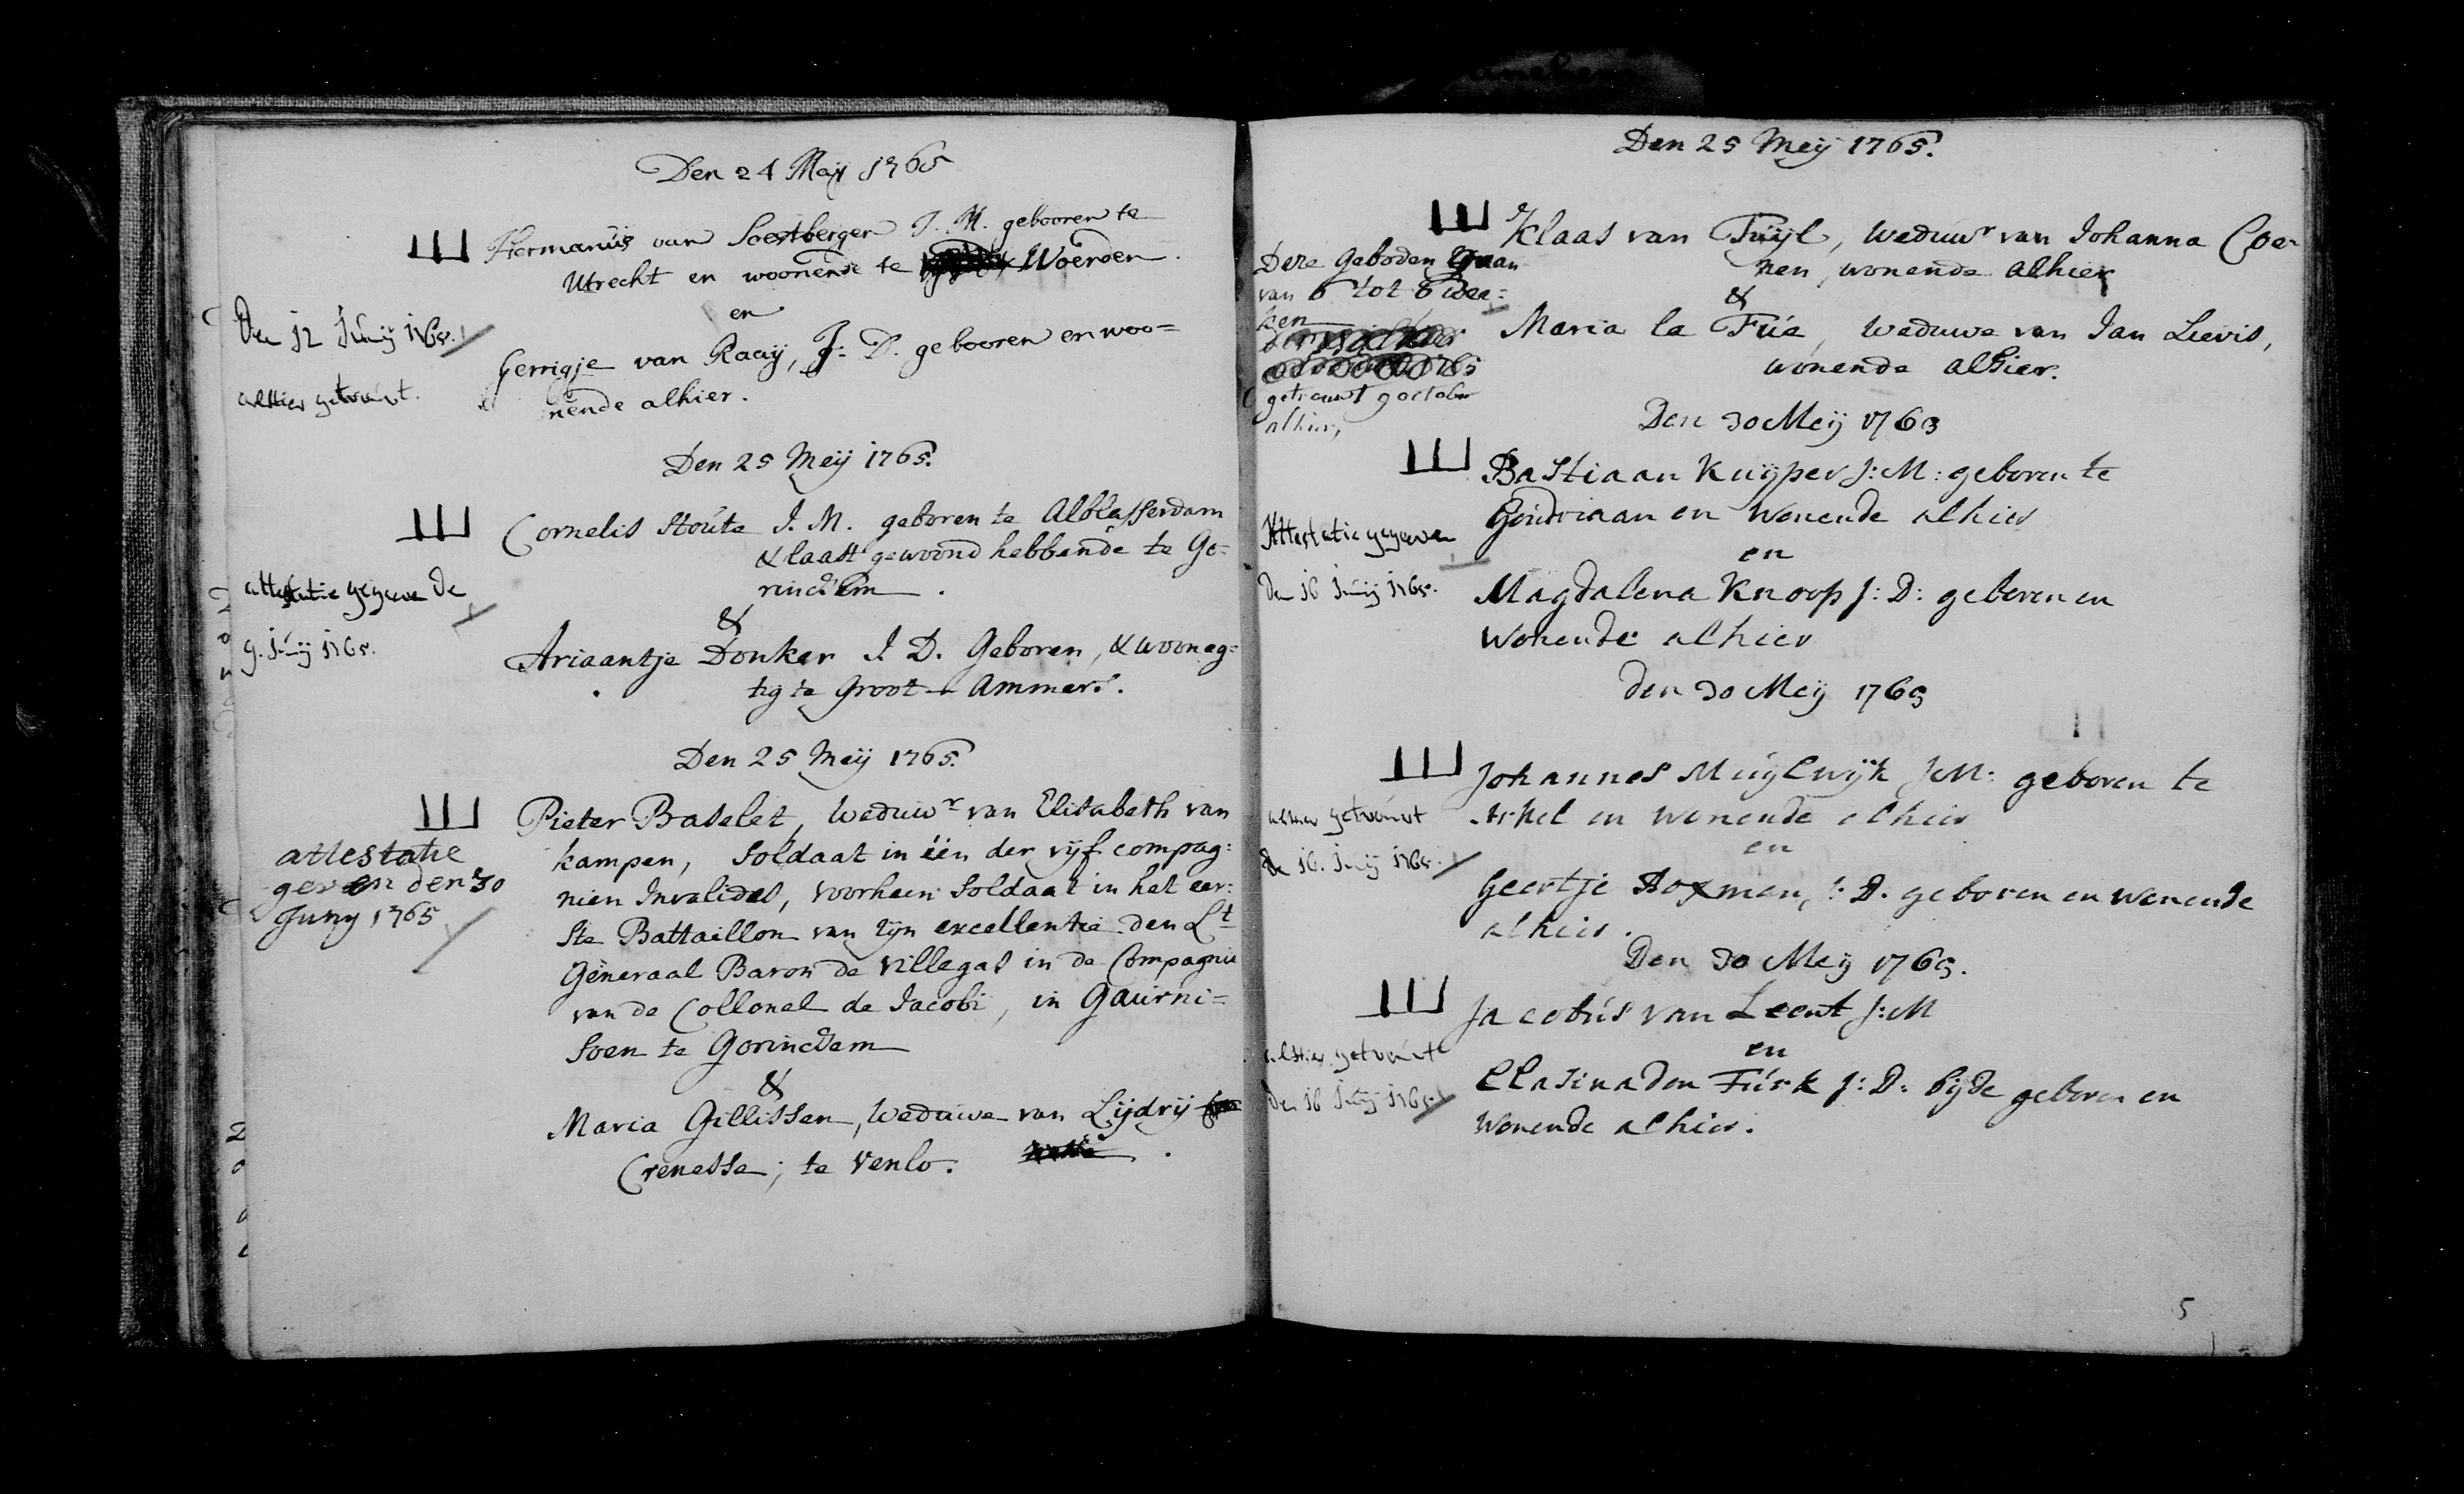 Den 24 Maij 1765
Hermanus van Soestbergen J. M. gebooren te
Utrecht en woonende te Woerden.
en
Den 12 Junij 1765.
alhier getrouwt.
Gerrigje van Raaij, J: D. gebooren en woo=
nende alhier.
Den 25 Meij 1765.
Cornelis Stoute J. M. geboren te Alblasserdam
& laast gewoond hebbende te Go=
rinchem.
&
attestatie gegeven de
9. Junij 1765.
Ariaantje Donker J. D. Geboren, & woonag=
tig te Groot-Ammers.
Den 25 Meij 1765.
Pieter Baselet, Weduwr van Elisabeth van
kampen, Soldaat in één der vijf compag=
nien Invalides, voorheen Soldaat in het eer=
ste Battaillon van zijn excellentie den Lt
Generaal Baron de Villegas in de Compagnie
van de Collonel de Jacobi, in Gauirni=
soen te Gorinchem
&
attestatie
geven den 30
Juny 1765
Maria Gillissen, Weduwe van Lijdrij
Crenesse; te Venlo.
Den 25 Meij 1765.
Klaas van Tuijl, Weduwr van Johanna Coe=
nen, wonende alhier
&
Maria la Fúe, Weduwe van Jan Lievis,
wonende alhier.
Deze Geboden gaan
van 6 tot 6 wee=
ken
getrouwt 9 october
alhier,
Den 30 Meij 1765
Bastiaan Kuijper J: M: geboren te
Goudriaan en Wonende alhier
en
Attestatie gegeven
den 16 Junij 1765.
Magdalena Knoop J: D: geboren en
Wonende alhier
den 30 Meij 1765
Johannes Muijlwijk J:M: geboren te
Arkel en Wonende alhier
en
alhier getrouwt
de 16. Junij 1765.
Geertje Boxman, J: D. geboren en wonende
alhier.
Den 30 Meij 1765.
Jacobús van Leent J:M
en
alhier getrouwt
den 16 Junij 1765
Clasina den Túrk J: D: bijde geboren en
Wonende alhier.
5